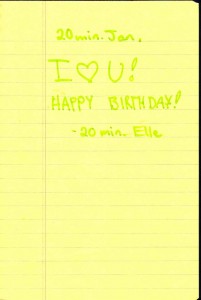 20 min. Jon,
I ♡ U!
HAPPY BIRTHDAY!
- 20 min. Elle